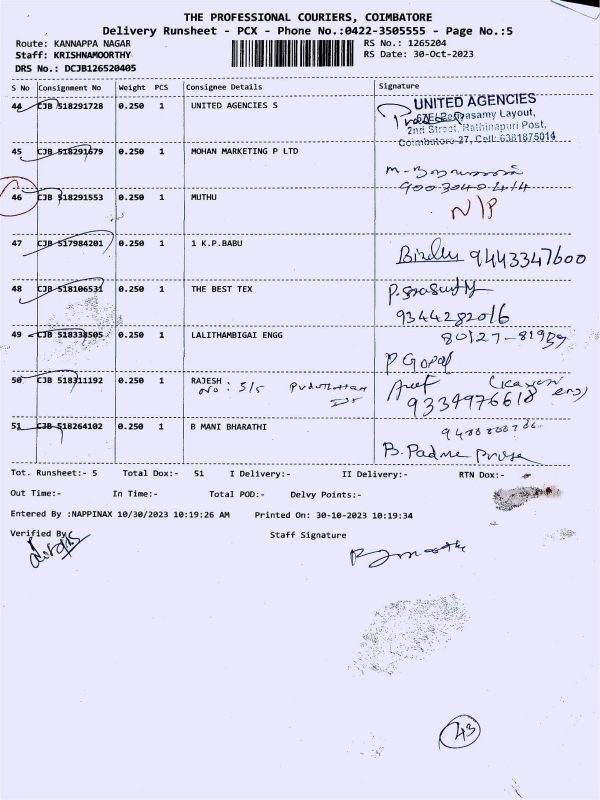 THE PROFESSIONAL COURIERS, COIMBATORE
Delivery Runsheet - PCX - Phone No.:0422-3505555 - Page No.:5
Route: KANNAPPA NAGAR
RS No.: 1265204
Staff: KRISHNAMOORTHY
RS Date: 30-Oct-2023
DRS No.: DCJB126520405
S No Consignment No Weight PCS Consignee Details Signature
44 CJB 518291728 0.250 1 UNITED AGENCIES S
UNITED AGENCIES
67E/ Periyasamy Layout,
2nd Street, Rathinapuri Post,
Coimbatore-27, Cell: 6381875014
45 CJB 518291679 0.250 1 MOHAN MARKETING P LTD
9003040414
46 CJB 518291553 0.250 1 MUTHU
N/P
47 CJB 517984201 0.250 1 1 K.P.BABU
9443347600
48 CJB 518106531 0.250 1 THE BEST TEX
9344282016
49 CJB 518338505 0.250 1 LALITHAMBIGAI ENGG
80127-81939
P Gopal
50 CJB 518311192 0.250 1 RAJESH
No: 5/5
9334976618
51 CJB 518264102 0.250 1 B MANI BHARATHI
B. Padma
Tot. Runsheet:- 5 Total Dox:- 51 I Delivery:- II Delivery:- RTN Dox:-
Out Time:- In Time:- Total POD:- Delvy Points:-
Entered By :NAPPINAX 10/30/2023 10:19:26 AM Printed On: 30-10-2023 10:19:34
Verified By
Staff Signature
43